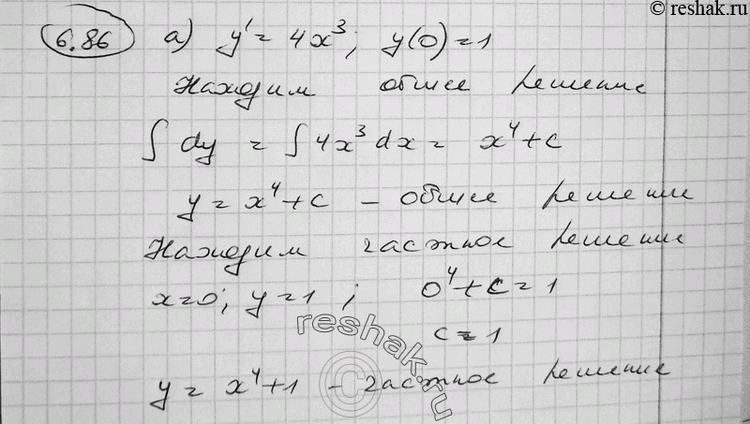 © reshak.ru
6.86 а) y' = 4x³; y(0) = 1
Находим общее решение
∫ dy = ∫ 4x³ dx = x⁴ + c
y = x⁴ + c – общее решение
Находим частное решение
x=0; y=1; 0⁴ + c = 1
c = 1
reshak.ru
©
y = x⁴ + 1 – частное решение